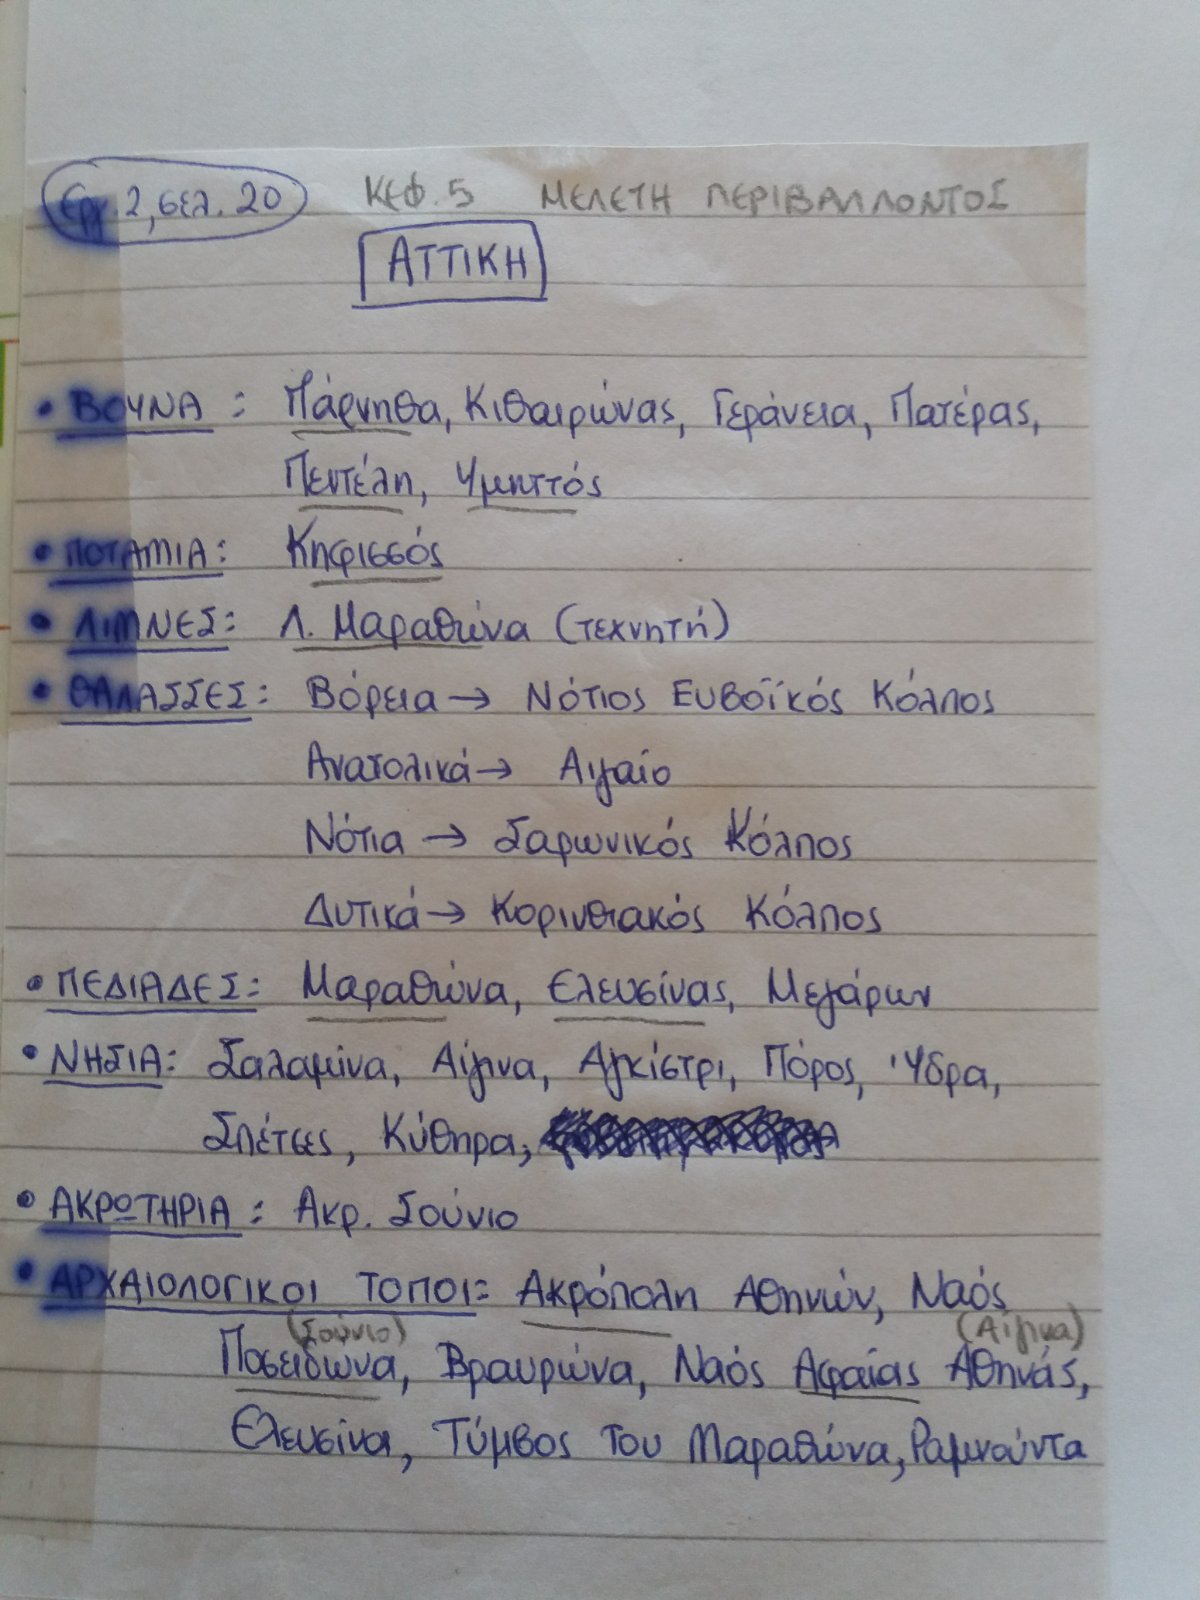 Εργ. 2, σελ. 20 ΚΕΦ. 5 ΜΕΛΕΤΗ ΠΕΡΙΒΑΛΛΟΝΤΟΣ
ΑΤΤΙΚΗ
• ΒΟΥΝΑ: Πάρνηθα, Κιθαιρώνας, Γεράνεια, Πατέρας,
Πεντέλη, Υμηττός
• ΠΟΤΑΜΙΑ: Κηφισσός
• ΛΙΜΝΕΣ: Λ. Μαραθώνα (τεχνητή)
• ΘΑΛΑΣΣΕΣ: Βόρεια → Νότιος Ευβοϊκός Κόλπος
Ανατολικά → Αιγαίο
Νότια → Σαρωνικός Κόλπος
Δυτικά → Κορινθιακός Κόλπος
• ΠΕΔΙΑΔΕΣ: Μαραθώνα, Ελευσίνας, Μεγάρων
• ΝΗΣΙΑ: Σαλαμίνα, Αίγινα, Αγκίστρι, Πόρος, Ύδρα,
Σπέτσες, Κύθηρα,
• ΑΚΡΩΤΗΡΙΑ: Ακρ. Σούνιο
• ΑΡΧΑΙΟΛΟΓΙΚΟΙ ΤΟΠΟΙ: Ακρόπολη Αθηνών, Ναός
(Σούνιο) (Αίγινα)
Ποσειδώνα, Βραυρώνα, Ναός Αφαίας Αθηνάς,
Ελευσίνα, Τύμβος του Μαραθώνα, Ραμνούντα